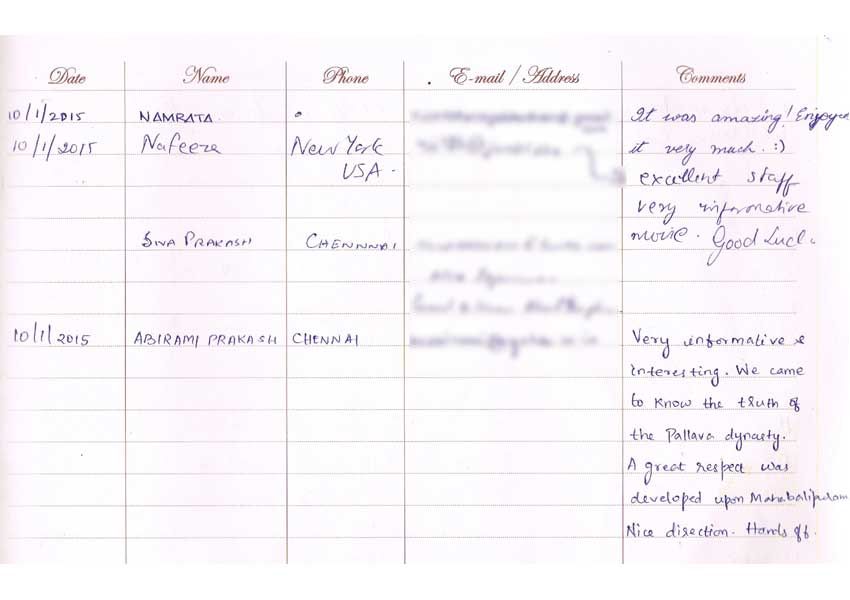 Date Name Phone E-mail / Address Comments
10/1/2015 NAMRATA It was amazing! Enjoyed
10/1/2015 Nafeeza New York it very much. :)
USA. excellent staff
very informative
SIVA PRAKASH CHENNNAI movie. Good Luck.
10/1/2015 ABIRAMI PRAKASH CHENNAI Very informative &
interesting. We came
to know the truth of
the Pallava dynasty.
A great respect was
developed upon Mahabalipuram
Nice direction. Hands off.